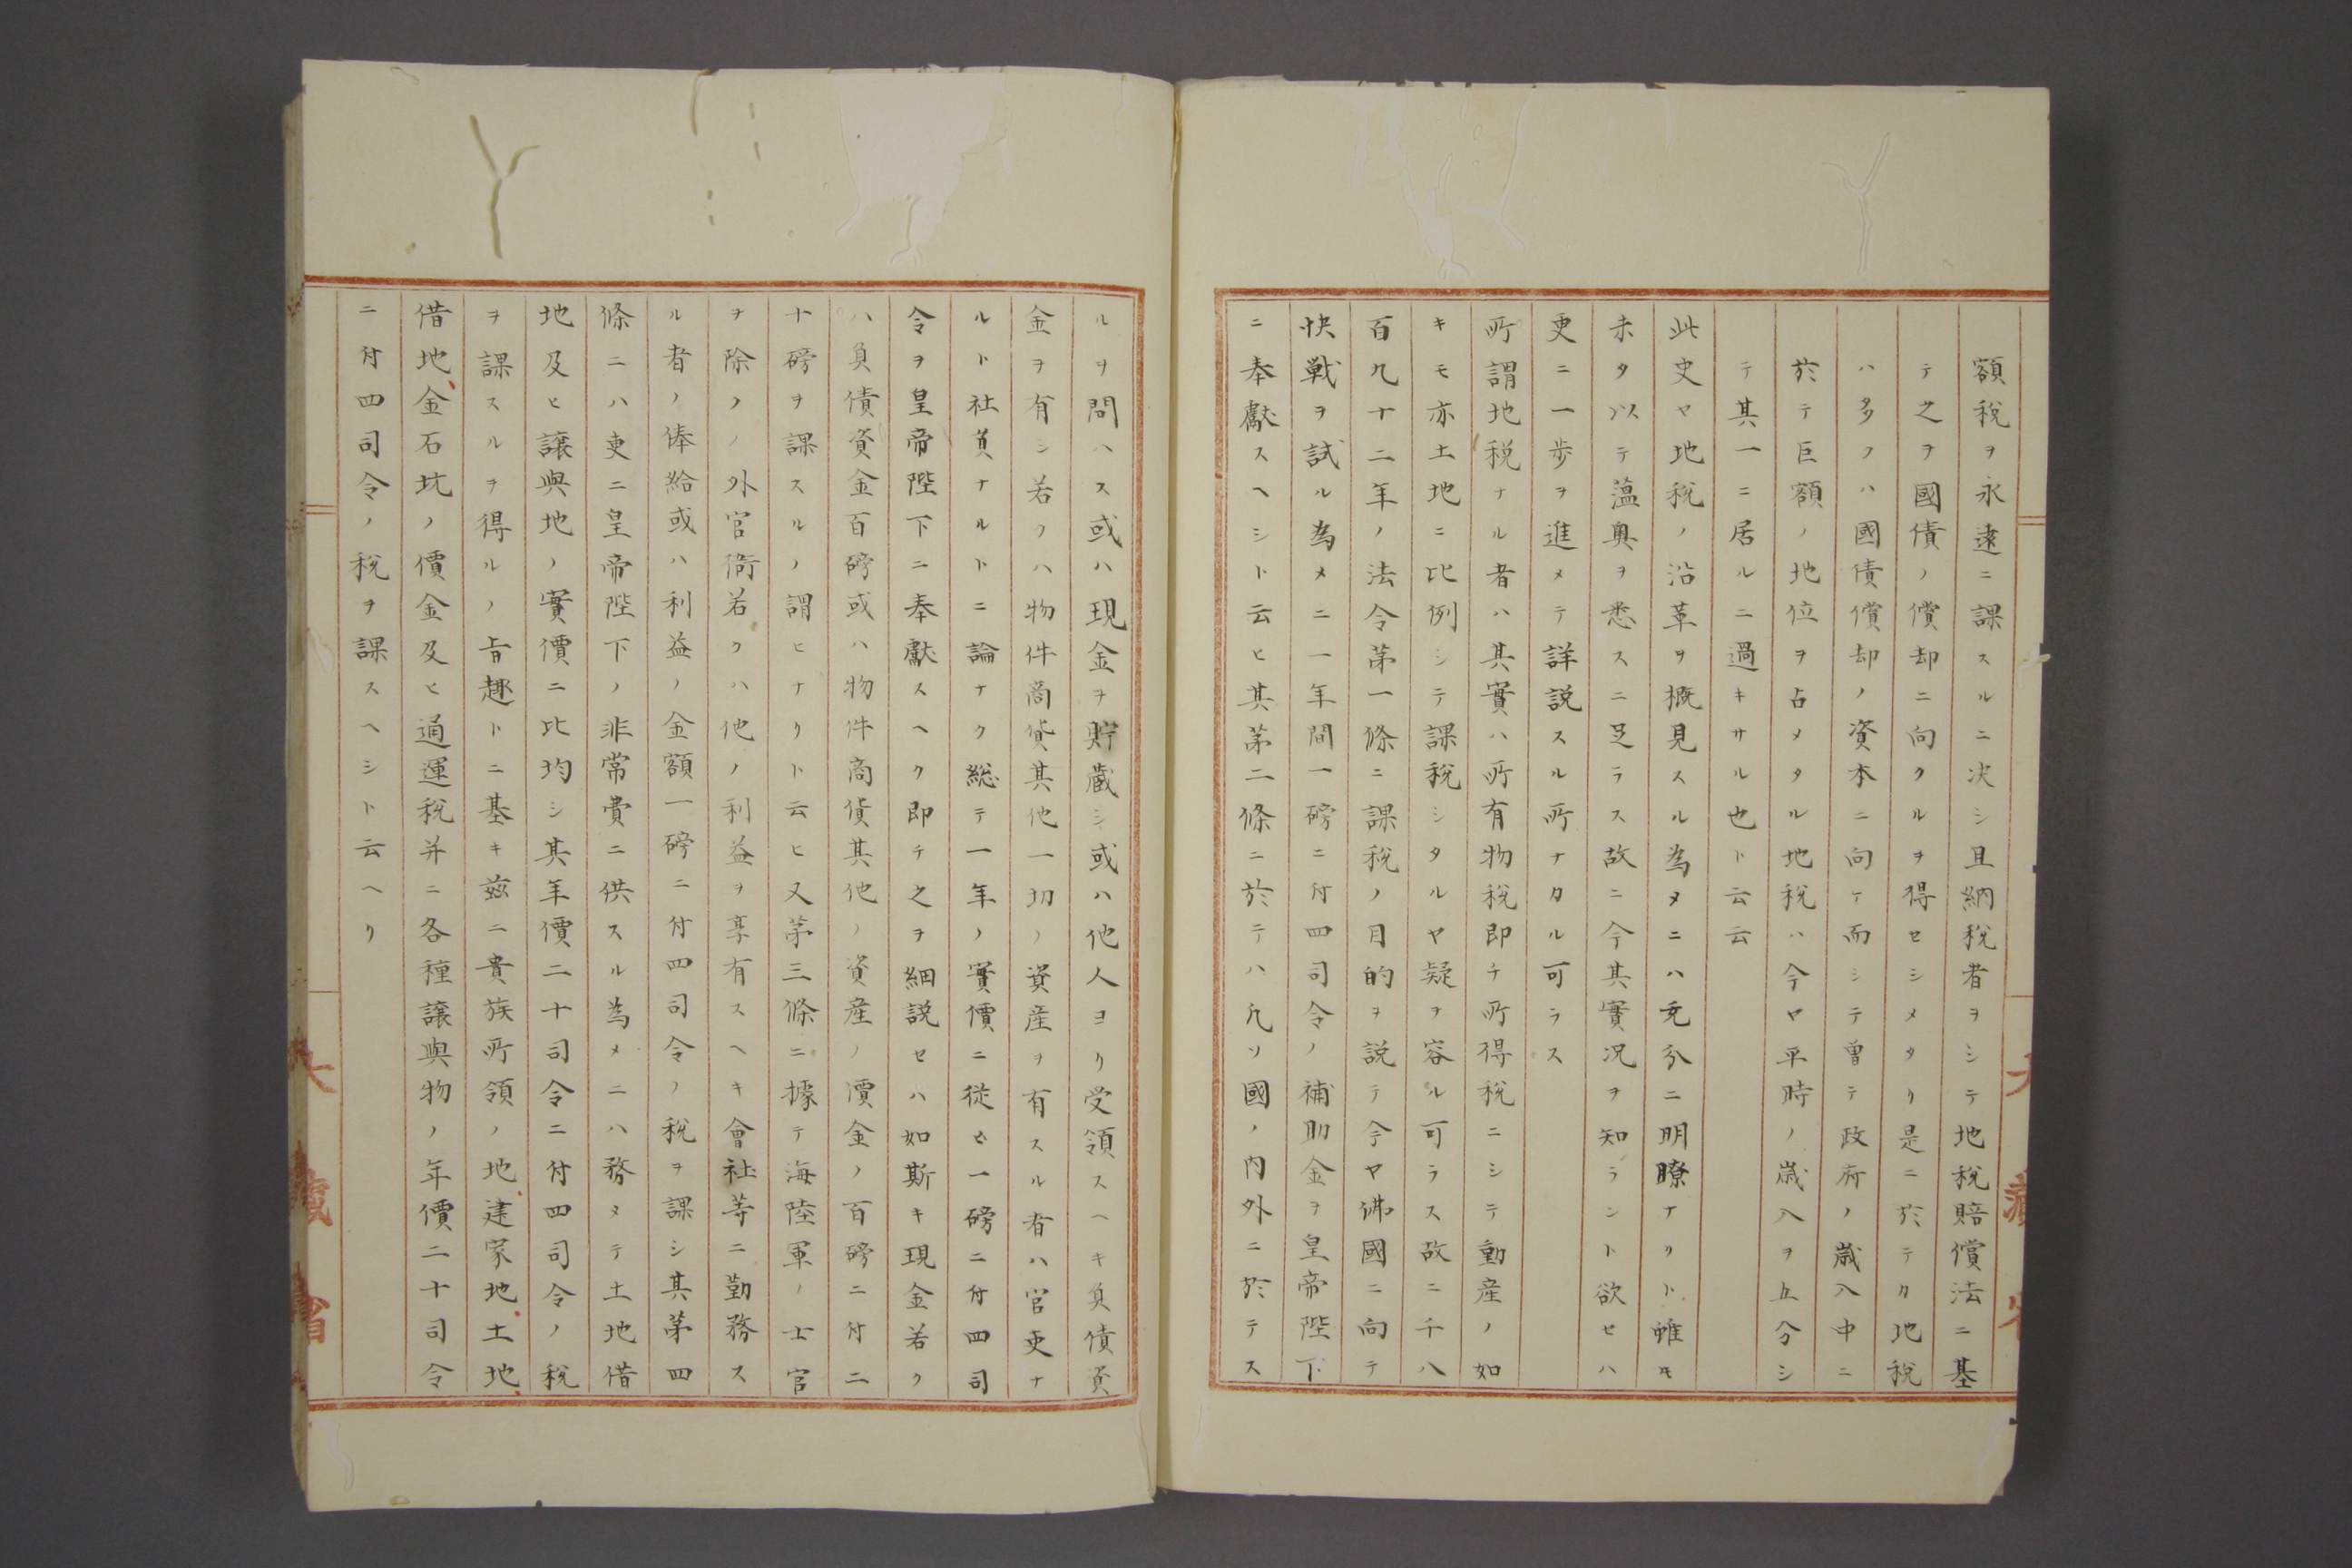 額税ヲ永遠ニ課スルニ決シ且納税者ヲシテ地税賠償法ニ基
テ之ヲ國債ノ償却ニ向クルヲ得セシメタリ是ニ於テカ地税
ハ多クハ國債償却ノ資本ニ向ケ而シテ曾テ政府ノ歳入中ニ
於テ巨額ノ地位ヲ占メタル地税ハ今ヤ平時ノ歳入ヲ五分シ
テ其一ニ居ルニ過キサル也ト云云
此史ヤ地税ノ沿革ヲ概見スル為メニハ充分ニ明瞭ナリト雖モ
未タ以テ薀奥ヲ悉スニ足ラス故ニ今其實況ヲ知ラント欲セハ
更ニ一歩ヲ進メテ詳説スル所ナカル可ラス
所謂地税ナル者ハ其實ハ所有物税即チ所得税ニシテ動産ノ如
キモ亦土地ニ比例シテ課税シタルヤ疑ヲ容ル可ラス故ニ千八
百九十二年ノ法令第一條ニ課税ノ目的ヲ説テ今ヤ佛國ニ向テ
快戦ヲ試ル為メニ一年間一磅ニ付四司令ノ補助金ヲ皇帝陛下
ニ奉獻スヘシト云ヒ其第二條ニ於テハ凡ソ國ノ内外ニ於テス
ルヲ問ハス或ハ現金ヲ貯蔵シ或ハ他人ヨリ受領スヘキ負債資
金ヲ有シ若クハ物件商貨其他一切ノ資産ヲ有スル者ハ官吏ナ
ルト社員ナルトニ論ナク総テ一年ノ實價ニ従ヒ一磅ニ付四司
令ヲ皇帝陛下ニ奉獻スヘク即チ之ヲ細説セハ如斯キ現金若ク
ハ負債資金百磅或ハ物件商貨其他ノ資産ノ價金ノ百磅ニ付二
十磅ヲ課スルノ謂ヒナリト云ヒ又第三條ニ據テ海陸軍ノ士官
ヲ除クノ外官衙若クハ他ノ利益ヲ享有スヘキ會社等ニ勤務ス
ル者ノ俸給或ハ利益ノ金額一磅ニ付四司令ノ税ヲ課シ其第四
條ニハ更ニ皇帝陛下ノ非常費ニ供スル為メニハ務メテ土地借
地及ヒ譲與地ノ實價ニ比均シ其年價二十司令ニ付四司令ノ税
ヲ課スルヲ得ルノ旨趣トニ基キ茲ニ貴族所領ノ地建家地土地
借地金石坑ノ價金及ヒ通運税并ニ各種譲與物ノ年價二十司令
ニ付四司令ノ税ヲ課スヘシト云ヘリ